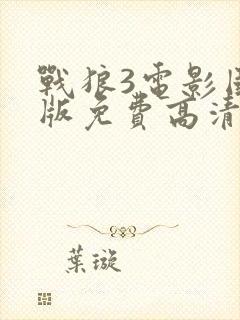 戰狼3電影
版免費高清
葉璇